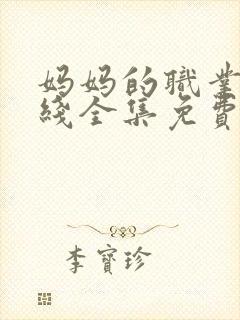 妈妈的職業
綫全集免費
李寶珍